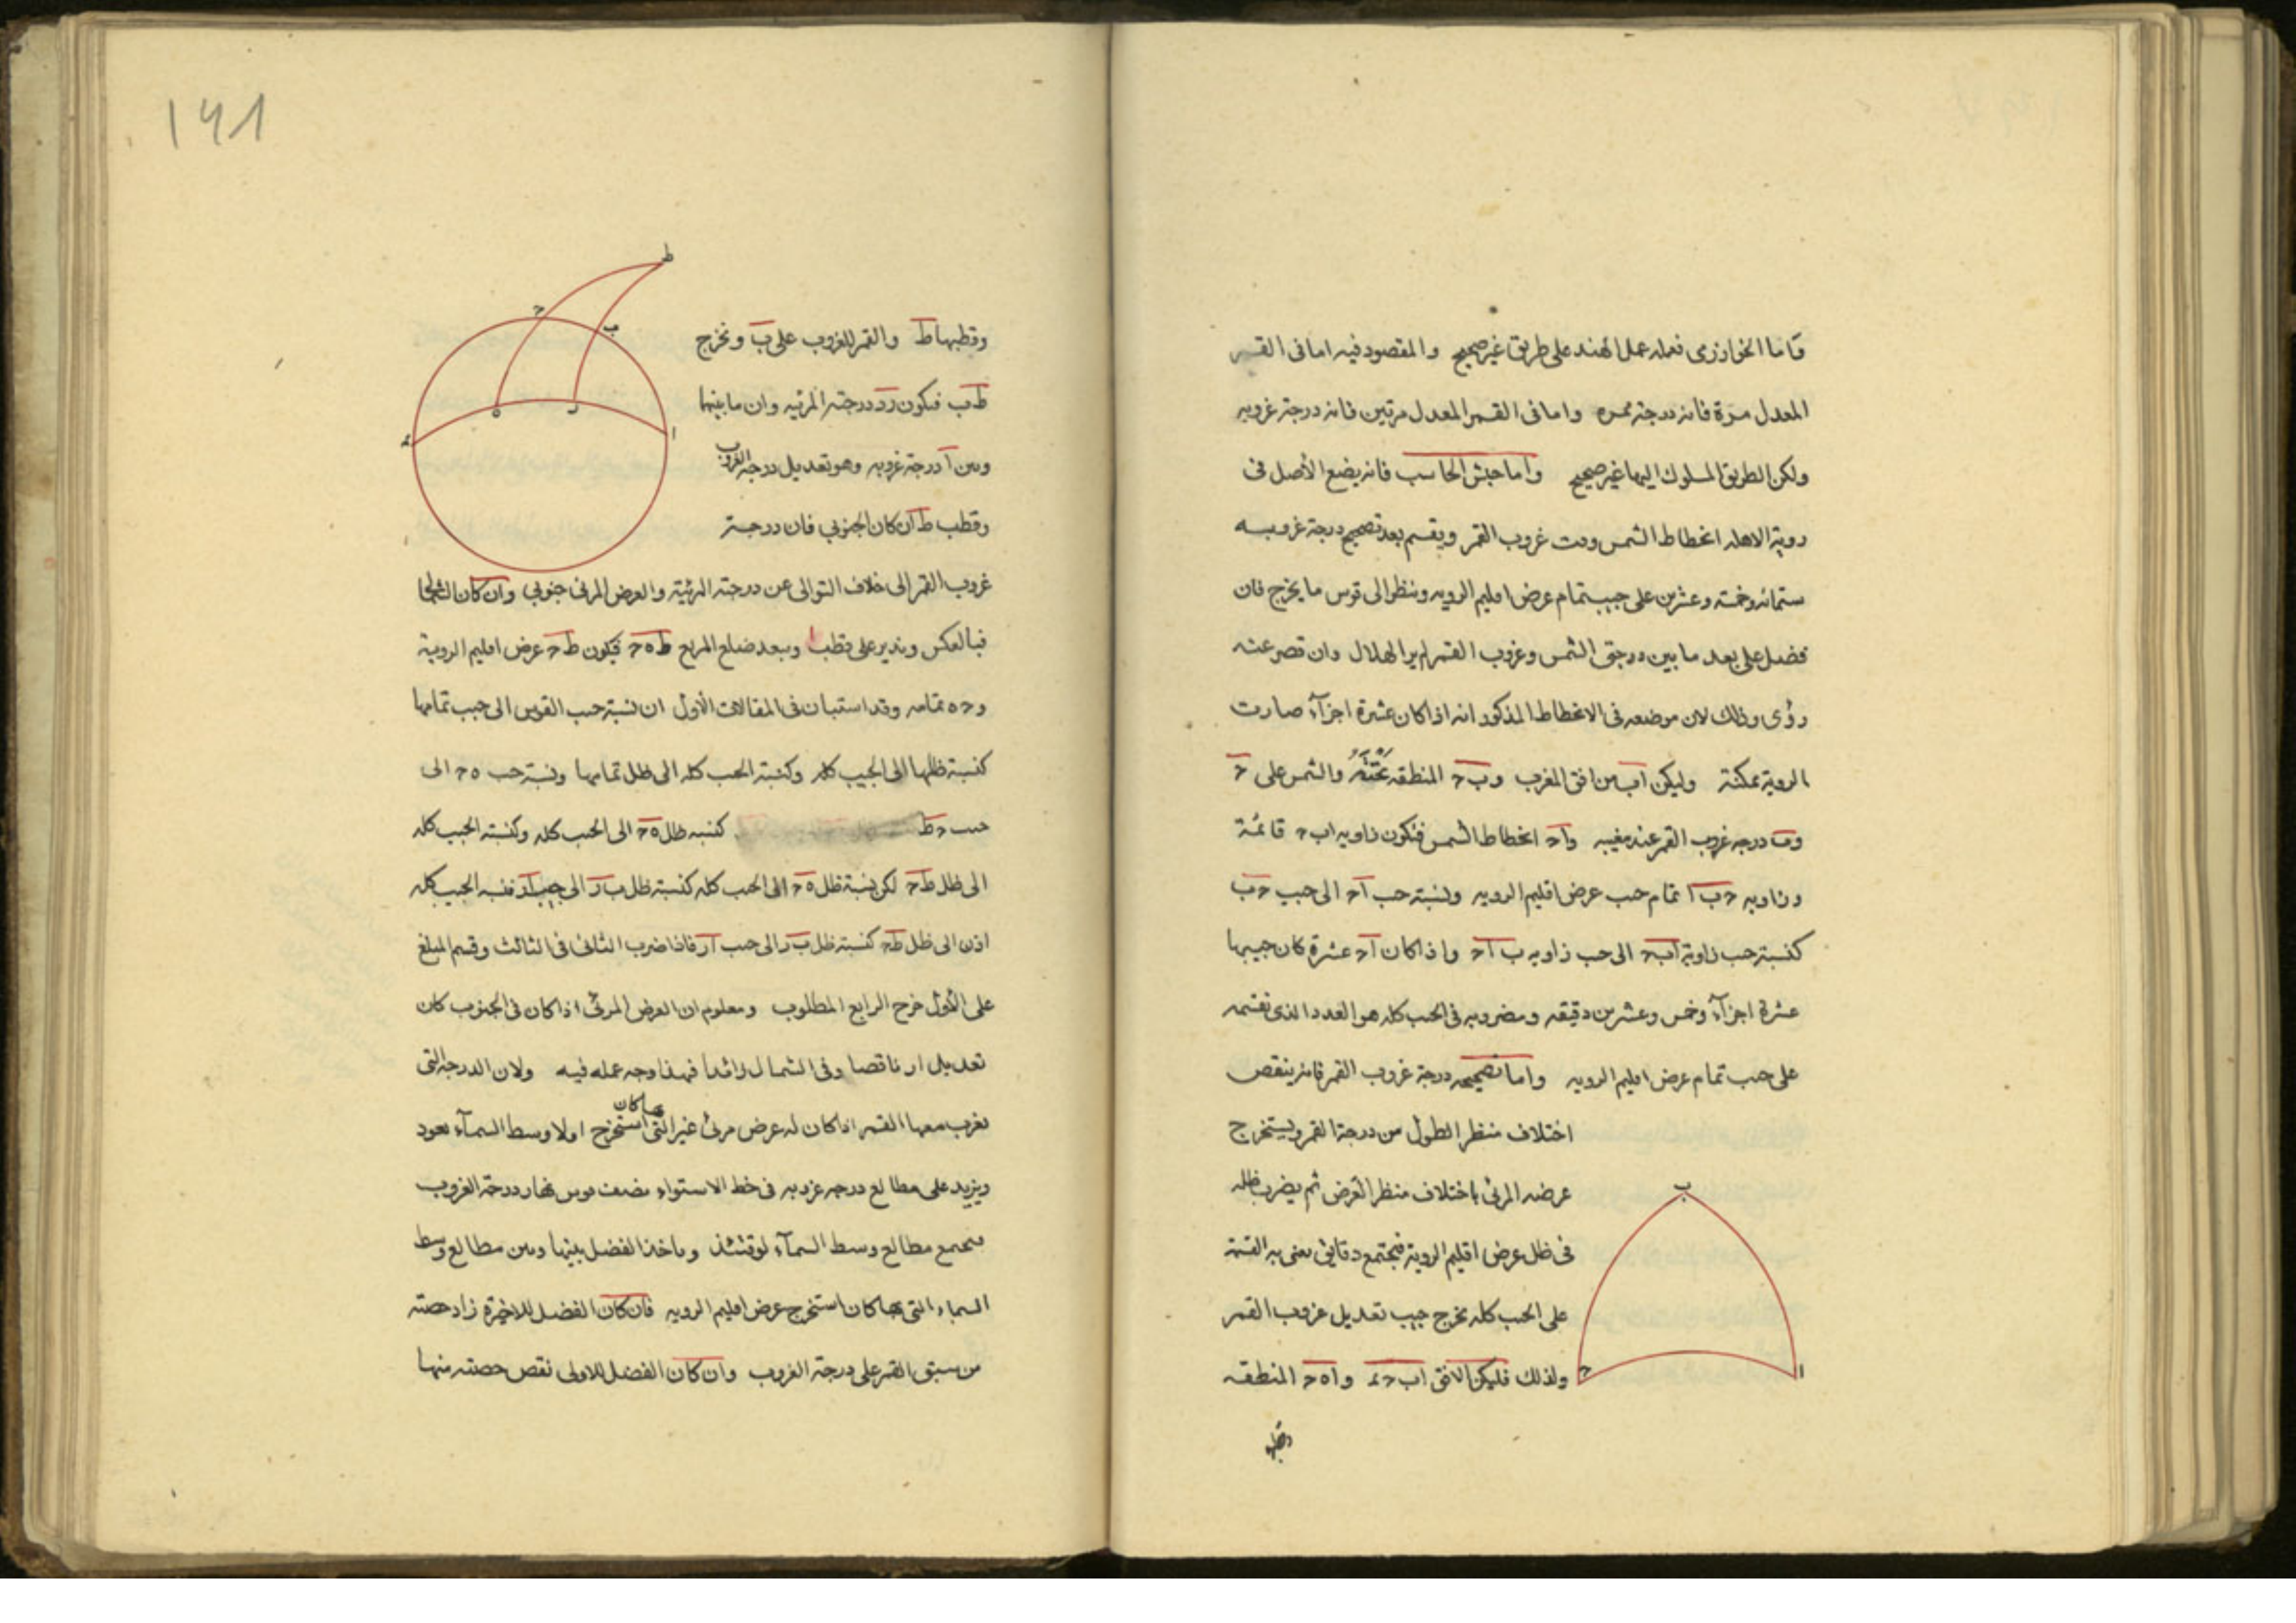 وأما الخوارزمى فعمله عمل الهند على طريق غير صحيح والمقصود فيه اما فى القمر
المعدل مرة فانه درجة ممره واما فى القمر المعدل مرتين فانه درجة غروبه
ولكن الطريق المسلوك اليها غير صحيح وأما حبش الحاسب فانه يضع الأصل فى
روية الاهله انحطاط الشمس وقت غروب القمر ويقسم بعد تصحيح درجة غروبه
ستمائه وخمسه وعشرين على جيب تمام عرض اقليم الرويه وينظر الى قوس ما يخرج فان
فضل على بعد ما بين درجتى الشمس وغروب القمر لم ير الهلال وان قصر عنه
رؤى وذلك لان موضعه فى الانحطاط المذكور انه اذا كان عشرة اجزآء صارت
الروية ممكنة وليكن اب من افق المغرب وب ح المنطقه تحته والشمس على ح
وب درجه غروب القمر عند مغيبه وا ح انحطاط الشمس فتكون زاويه اب ح قائمة
وزاويه ح ب ا تمام حب عرض اقليم الرويه ونسبة حب اح الى جيب ح ب
كنسبة حب زاوية اب ح الى حب زاويه ب اح واذا كان اح عشرة كان جيبها
عشرة اجزآء وخمس وعشرين دقيقه ومضروبه فى الحب كله هو العدد الذى نقسمه
على حب تمام عرض اقليم الرويه واما تصحيحه درجة غروب القمر فانه ينقص
اختلاف منظر الطول من درجة القمر ويستخرج
عرضه المرئى باختلاف منظر العرض ثم يضرب ظله
فى ظل عرض اقليم الروية فيجتمع دقايق يعنى به القسمة
على الحب كله يخرج جيب تعديل غروب القمر
ولذلك فليكن الافق اب ح د واه ح المنطقه
ب
ا
ح
وقطبها
١٤١
ط
ح
ب
ه
ر
د
ا
وقطبها ط والقمر للغروب على ب ونخرج
ط ب فيكون ر درجته المرئيه وان ما بينها
وبين ا درجة غروبه وهو تعديل درجه الغروب
وقطب ط ان كان الجنوبي فان درجة
غروب القمر الى خلاف التوالى عن درجته المرئية والعرض المرئى جنوبي وان كان الشمالى
فبالعكس وندير على قطب ا وببعد ضلع المربع ط ه ح فيكون ط ح عرض اقليم الروية
و ح ه تمامه وقد استبان فى المقالات الأول ان نسبة حب القوس الى جيب تمامها
كنسبة ظلها الى الجيب كله وكنسبة الحب كله الى ظل تمامها ونسبة حب ه ح الى
حب ح ط كنسبه ظل ه ح الى الحب كله وكنسبة الجيب كله
الى ظل ط ح لكن نسبة ظل ه ح الى الحب كله كنسبة ظل ب ر الى جيب ا ر فنسبه الجيب كله
اذن الى ظل ط ح كنسبة ظل ب ر الى حب ا ر فاذا ضرب الثانى فى الثالث وقسم المبلغ
على الأول خرج الرابع المطلوب ومعلوم ان العرض المرئى اذا كان فى الجنوب كان
تعديل ا ر ناقصا وفى الشمال زائدا فهذا وجه عمله فيه ولان الدرجة التى
تغرب معها القمر اذا كان له عرض مرئى غير التى بها كان استخرج اولا وسط السمآء نعود
ويزيد على مطالع درجه غروبه فى خط الاستواء نصف قوس نهار درجة الغروب
فيجتمع مطالع وسط السمآء لوقتئذ وياخذ الفضل بينها وبين مطالع وسط
السماء التى بها كان استخرج عرض اقليم الرويه فان كان الفضل للاخيرة زاد حصته
من سبق القمر على درجة الغروب وان كان الفضل للاولى نقص حصته منها